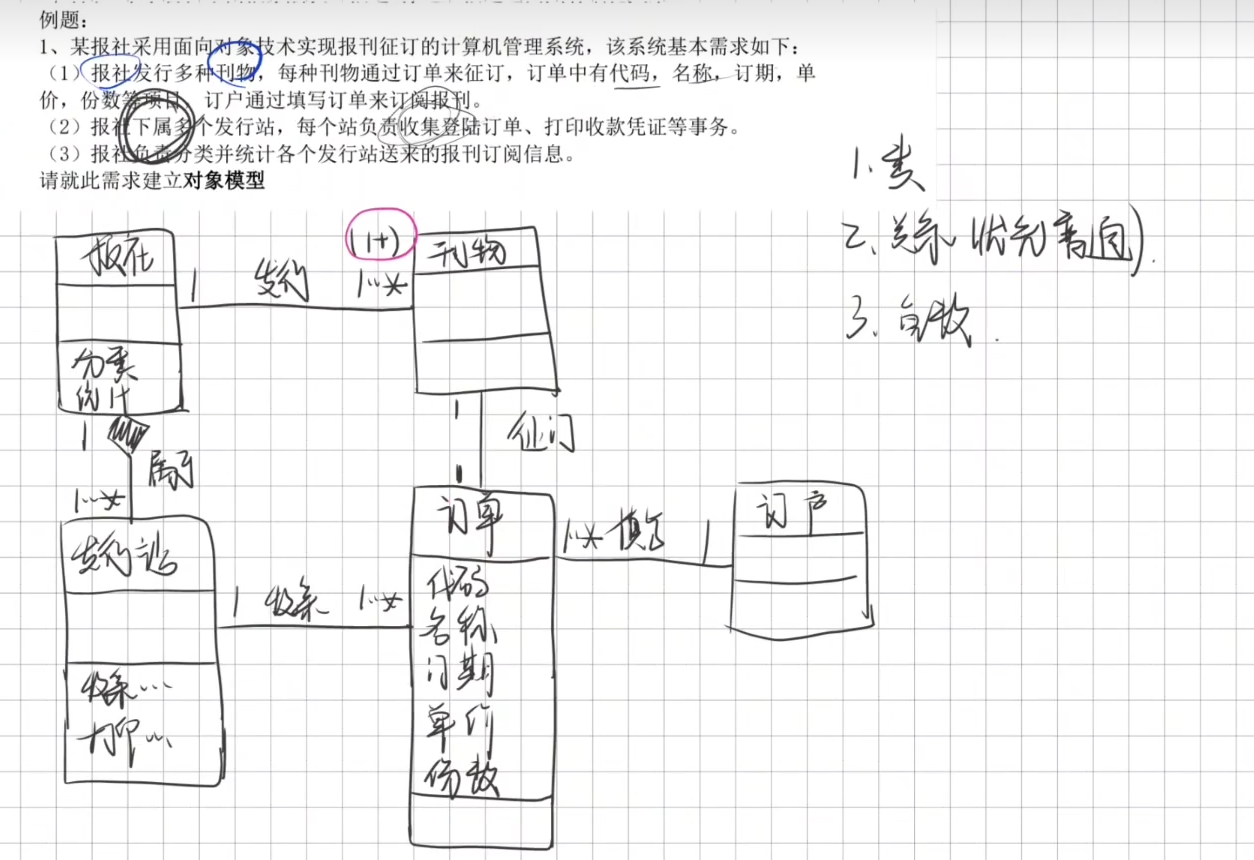 例题：
1、某报社采用面向对象技术实现报刊征订的计算机管理系统，该系统基本需求如下：
（1）报社发行多种刊物，每种刊物通过订单来征订，订单中有代码，名称，订期，单
价，份数等项目，订户通过填写订单来订阅报刊。
（2）报社下属多个发行站，每个站负责收集登陆订单、打印收款凭证等事务。
（3）报社负责分类并统计各个发行站送来的报刊订阅信息。
请就此需求建立对象模型
1.类
2、关系
3、
报社
1 发行 1..*
(1+)
刊物
分类
统计
1
属于
1..*
1
征订
1
发行站
收集…
打印…
1 收集 1..*
订单
代码
名称
订期
单价
份数
1..* 填写 1
订户